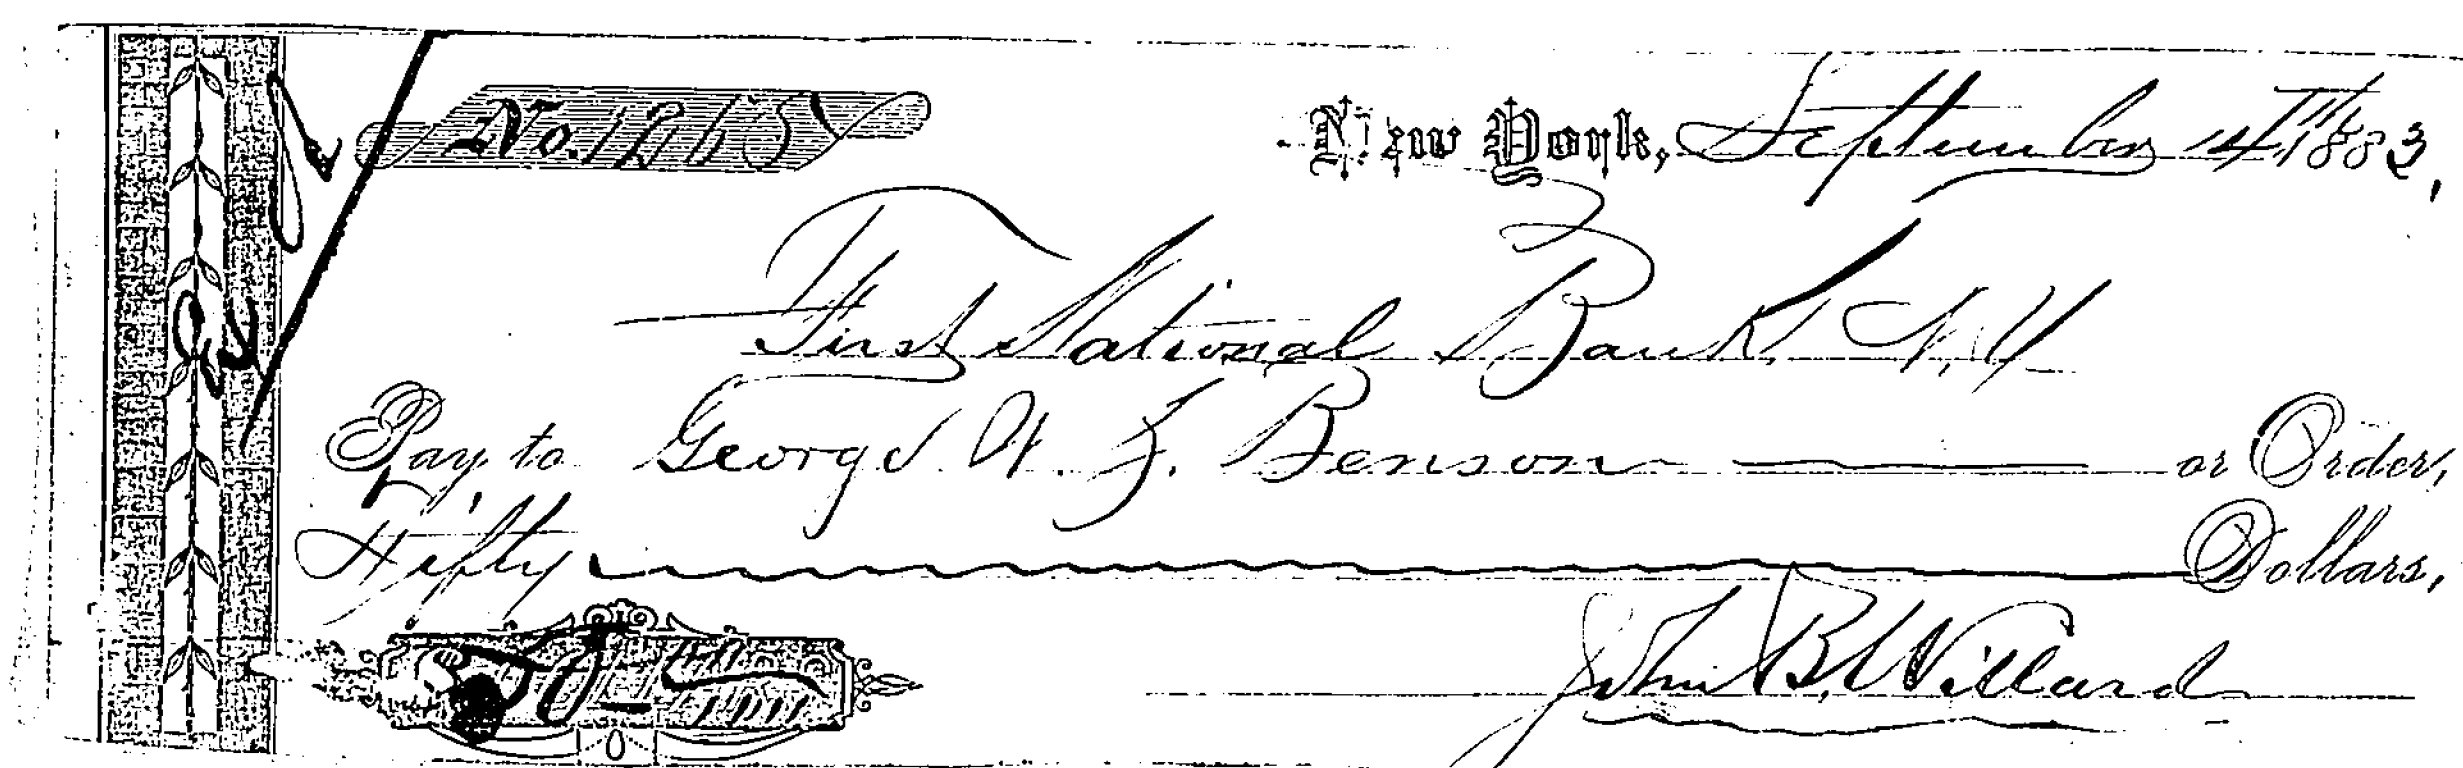 No. 1265
New York, September 14th 1883,
First National Bank, N.Y.
Pay to George W. F. Benson or Order,
Fifty Dollars,
John B. Willard